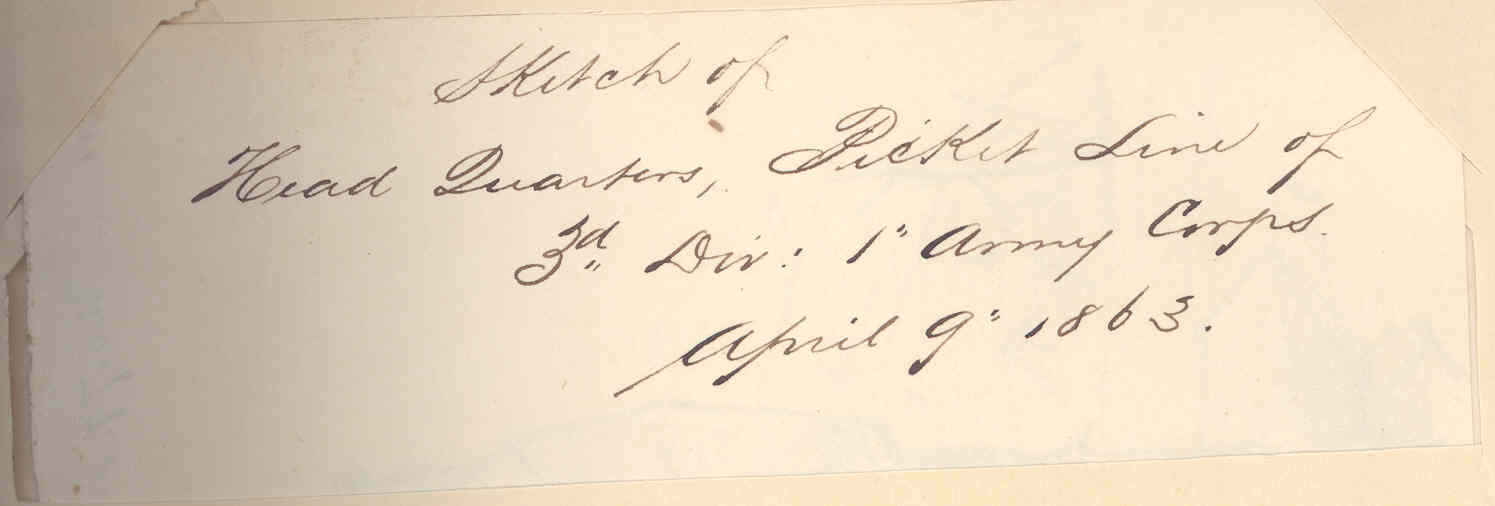 Sketch of
Head Quarters, Picket Line of
3d" Div: 1" Army Corps.
April 9" 1863.